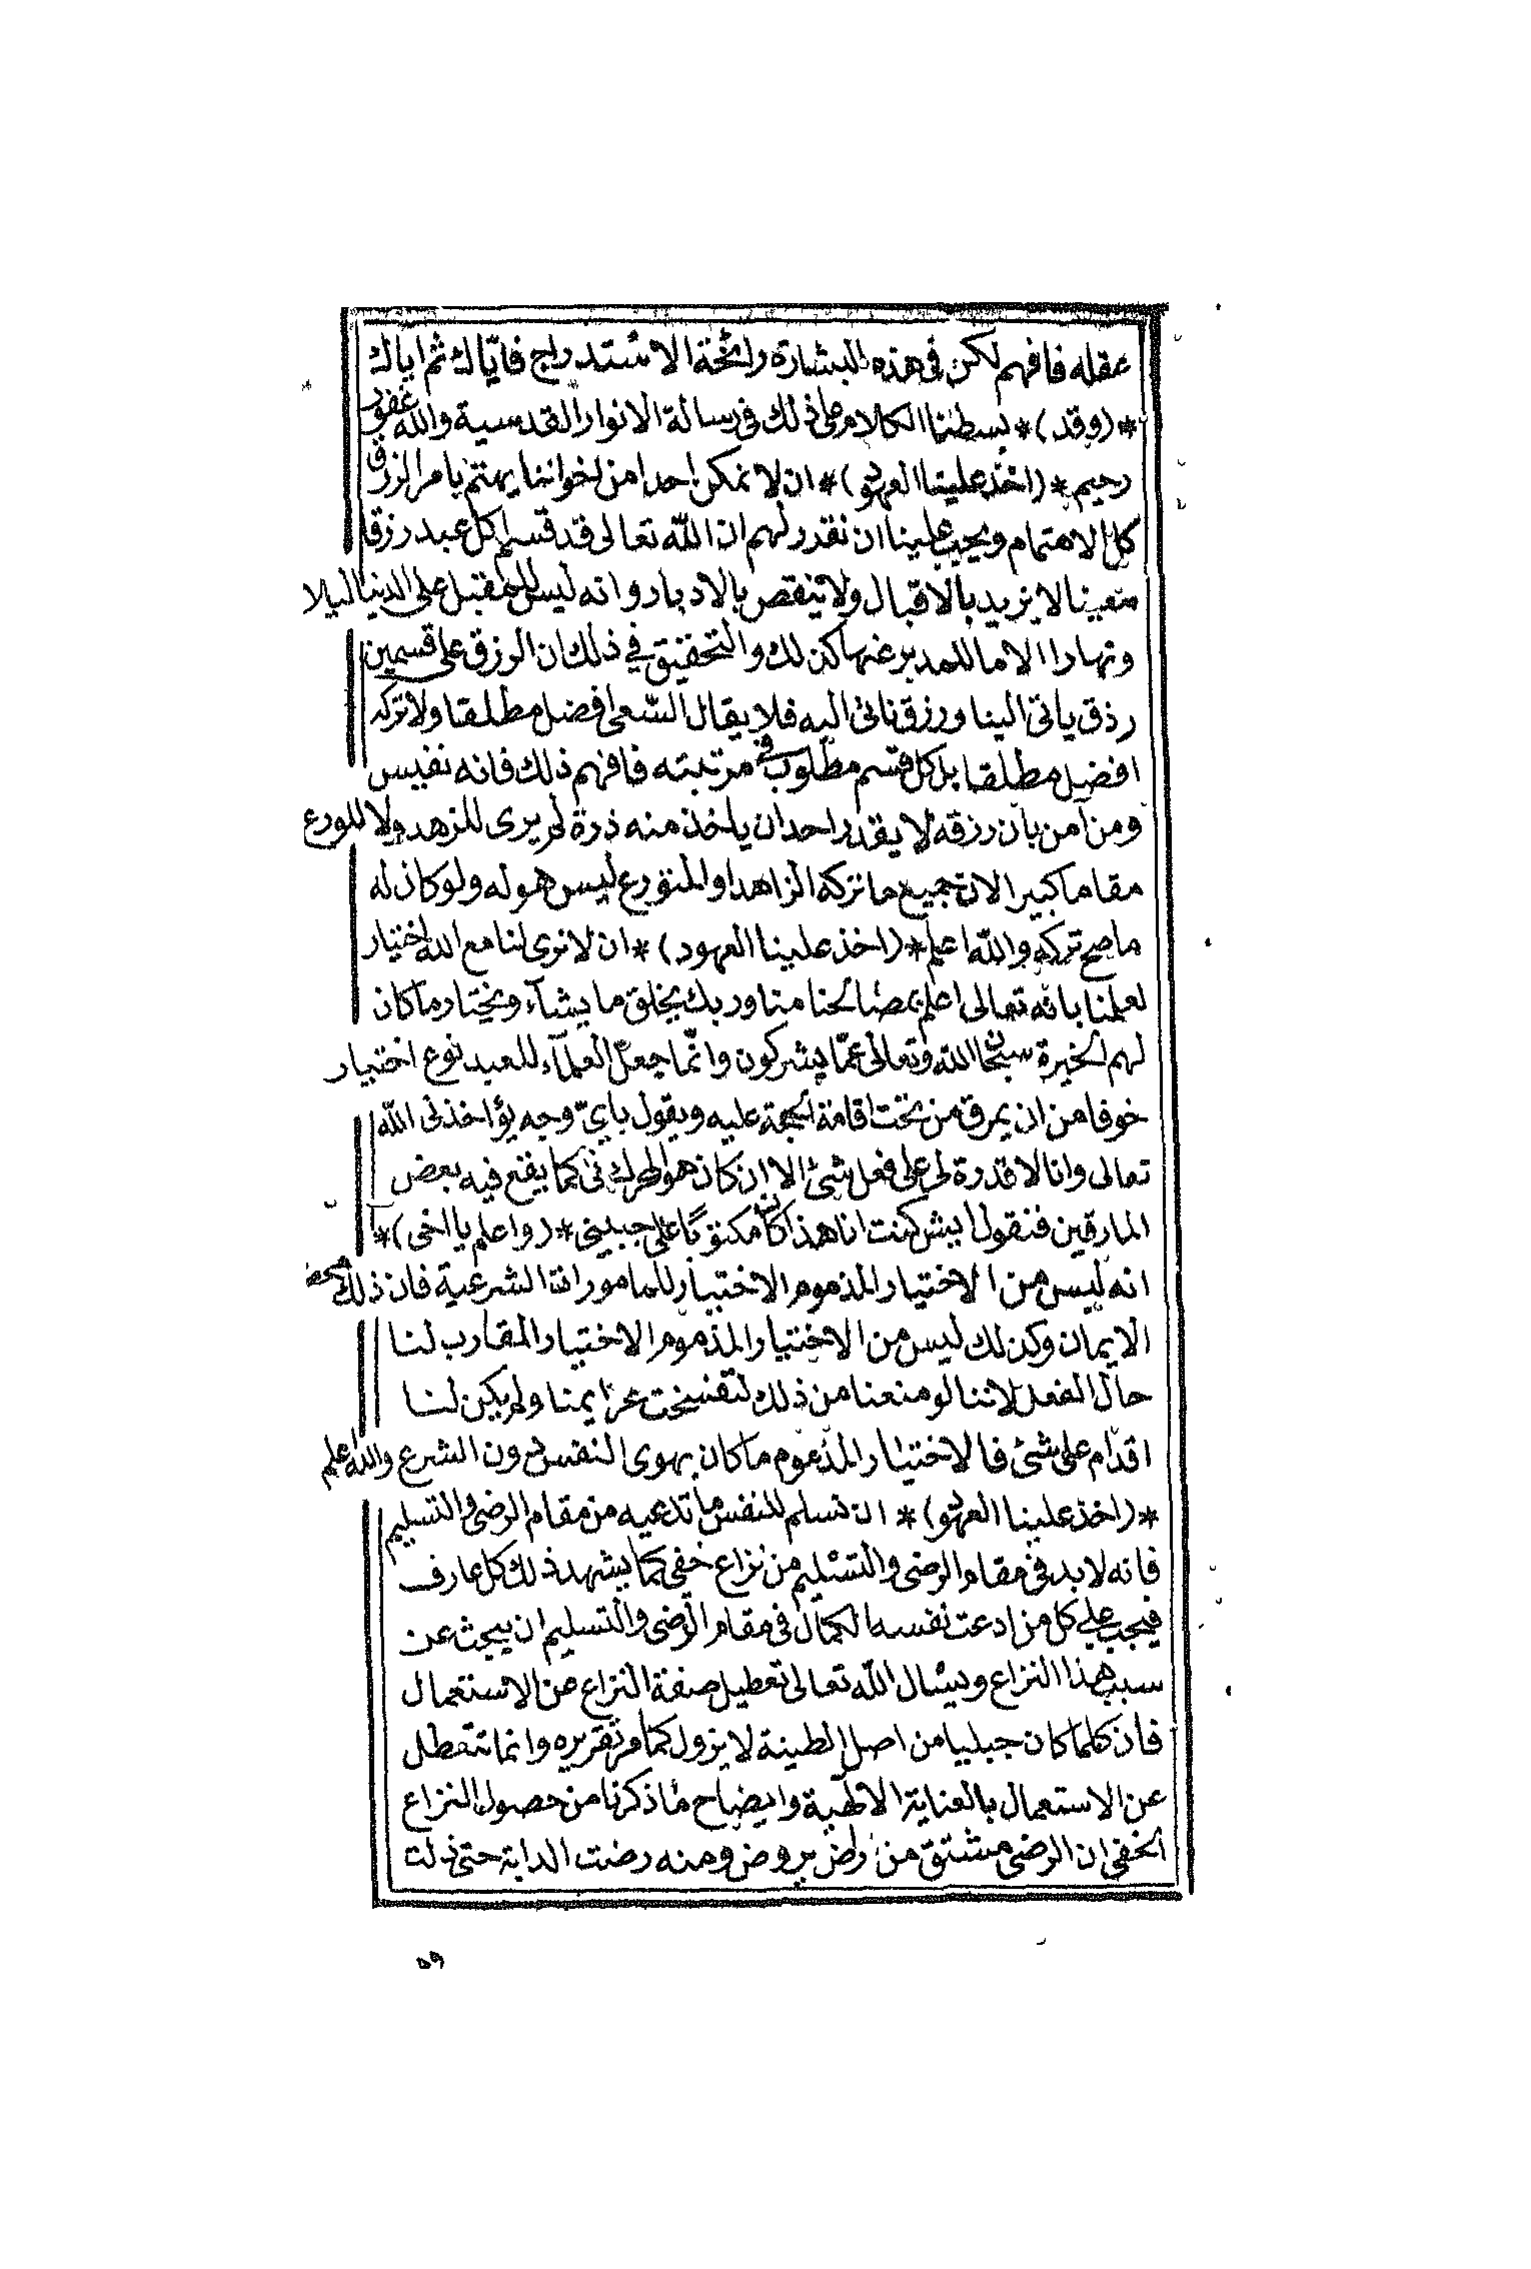 عقله فافهم لكن فى هذه البشارة رائحة الاستدراج فايّاك ثم اياك
*(وقد)* بسطنا الكلام على ذلك فى رسالة الانوار القدسية والله غفور
رحيم *(اخذ علينا العهود)* ان لا نمكن احدا من اخواننا يهتم بامر الرزق
كل الاهتمام ويجب علينا ان نقدر لهم ان الله تعالى قد قسم لكل عبد رزقا
معينا لا يزيد بالاقبال ولا ينقص بالادبار وانه ليس للمقبل على الدنيا ليلا
ونهارا الا ما للمدبر عنها كذلك والتحقيق في ذلك ان الرزق على قسمين
رزق ياتى الينا ورزق ناتى اليه فلا يقال السّعى افضل مطلقا ولا تركه
افضل مطلقا بل كل قسم مطلوب فى مرتبته فافهم ذلك فانه نفيس
ومن آمن بان رزقه لا يقدر احد ان ياخذ منه ذرة لم يرى للزهد ولا للورع
مقاما كبيرا لان جميع ما تركه الزاهد او المتورع ليس هو له ولو كان له
ما صح تركه والله اعلم *(اخذ علينا العهود)* ان لا نرى لنا مع الله اختيار
لعلمنا بانه تعالى اعلم بمصالحنا منا وربك يخلق ما يشآء ويختار ما كان
لهم الخيرة سبحان الله وتعالى عمّا يشركون وانّما جعل العلمآء للعبد نوع اختيار
خوفا من ان يمرق من تحت اقامة الحجة عليه ويقول بايّ وجه يؤاخذنى الله
تعالى وانا لا قدرة لى على فعل شئ الا ان كان هو المحرك لى كما يقع فيه بعض
المارقين فنقول ايش كنت انا هذا كان مكتوبًا على جبينى *(واعلم يا اخى)*
انه ليس من الاختيار المذموم الاختيار للمامورات الشرعية فان ذلك محض
الايمان وكذلك ليس من الاختيار المذموم الاختيار المقارب لنا
حال الفعل لاننا لو منعنا من ذلك لتفسخت عزايمنا ولم يكن لنا
اقدام على شئ فالاختيار المذموم ما كان بهوى النفس دون الشرع والله اعلم
*(اخذ علينا العهود)* ان لا نسلم للنفس ما تدعيه من مقام الرضى والتسليم
فانه لا بد فى مقام الرضى والتسليم من نزاع خفى كما يشهد ذلك كل عارف
فيجب على كل من ادعت نفسه الكمال فى مقام الرضى والتسليم ان يبحث عن
سبب هذا النزاع ويسال الله تعالى تعطيل صفة النزاع من الاستعمال
فان كلما كان جبليا من اصل الطينة لا يزول كما مر تقريره وانما تتعطل
عن الاستعمال بالعناية الالهية وايضاح ما ذكرنا من حصول النزاع
الخفى ان الرضى مشتق من راض يروض ومنه رضت الدابة حتى ذلت
٥٩